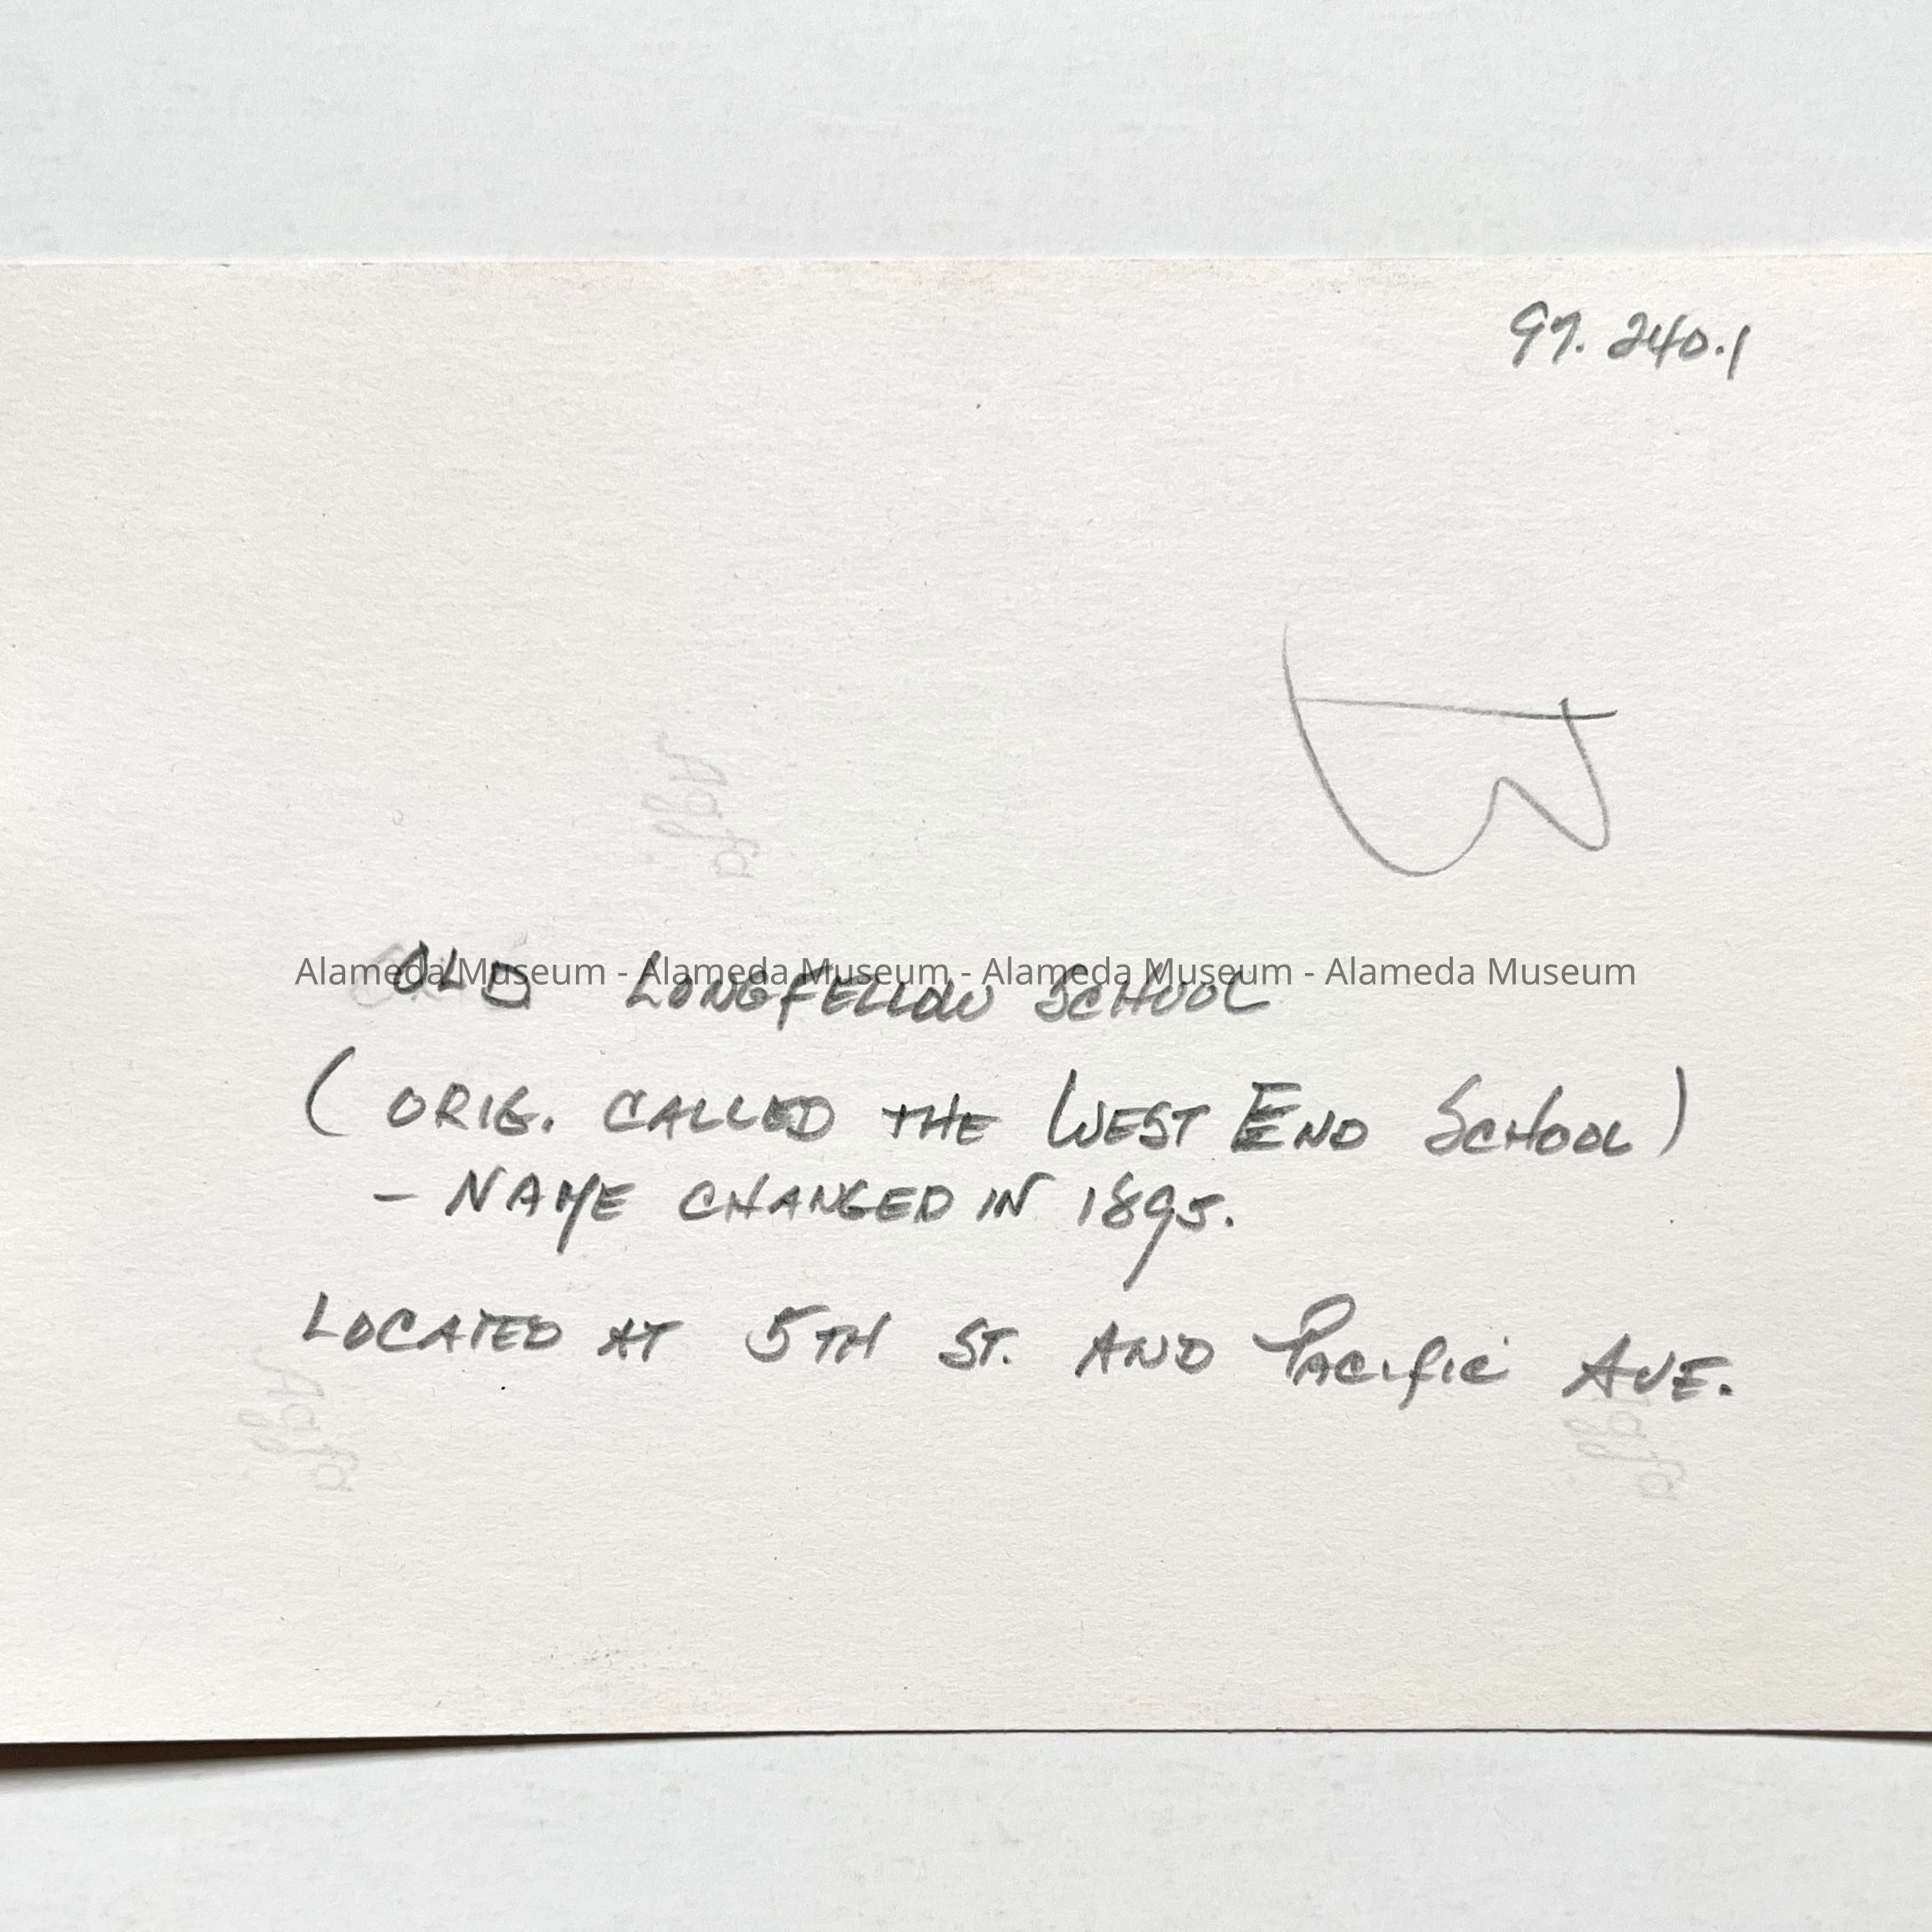 97.240.1
Agfa
Alameda Museum - Alameda Museum - Alameda Museum - Alameda Museum
OLD LONGFELLOW SCHOOL
(ORIG. CALLED THE WEST END SCHOOL)
- NAME CHANGED IN 1895.
LOCATED AT 5TH ST. AND PACIFIC AVE.
Agfa
Agfa